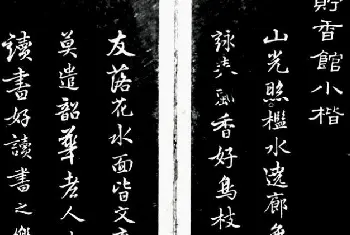 貯香館小楷
山光照檻水遶廊
詠春風香好鳥枝
友落花水面皆文
莫遣韶華老人
讀書好讀書之樂